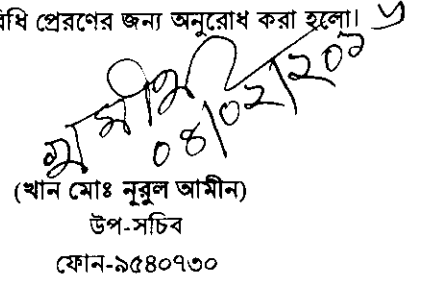 বিধি প্রেরণের জন্য অনুরোধ করা হলো।
০৪/০২/২০১
(খান মোঃ নূরুল আমীন)
উপ-সচিব
ফোন-৯৫৪০৭৩০